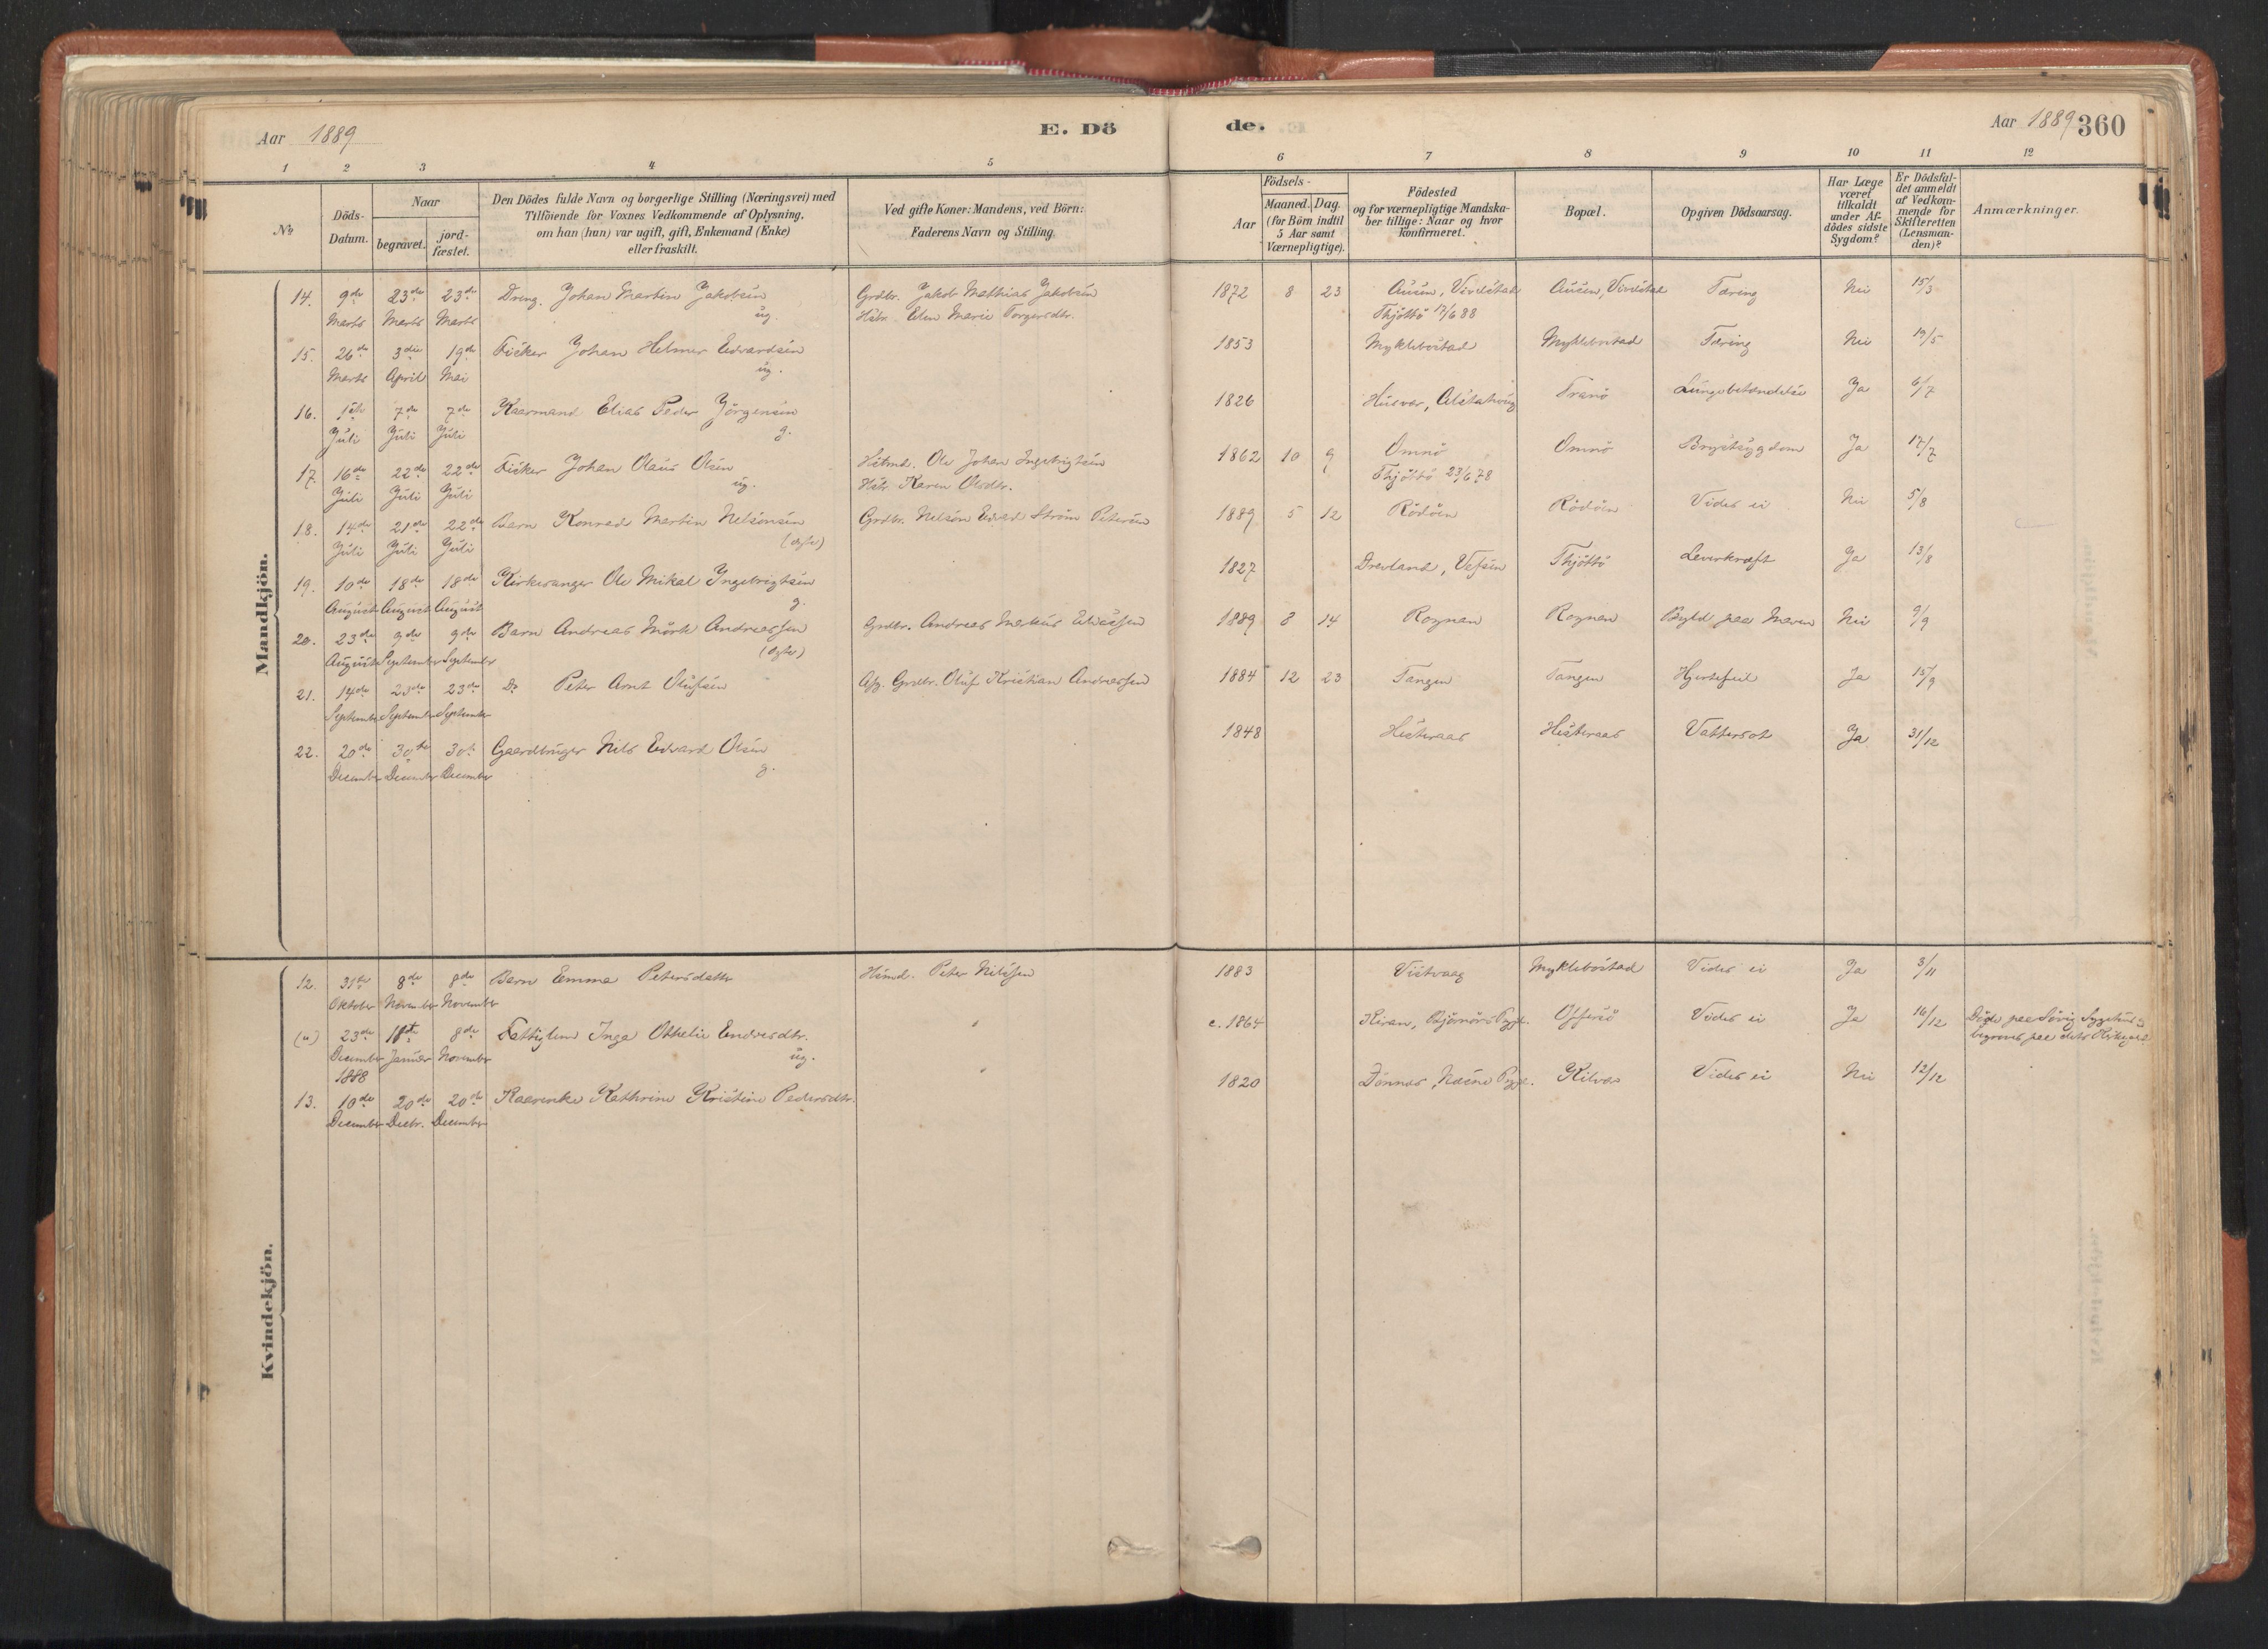 Aar 1889 E. Dö
de. Aar 1889 360
1 2 3 4 5 6 7 8 9 10 11 12
No
Döds-
Datum.
Naar
begravet.
jord-
fæstet.
Den Dödes fulde Navn og borgerlige Stilling (Næringsvei) med
Tilföiende for Voxnes Vedkommende af Oplysning,
om han (hun) var ugift, gift, Enkemand (Enke)
eller fraskilt.
Ved gifte Koner: Mandens, ved Börn:
Faderens Navn og Stilling.
Födsels-
Aar
Maaned. Dag.
(for Börn indtil
5 Aar samt
Værnepligtige).
Födested
og for værnepligtige Mandska-
ber tillige: Naar og hvor
konfirmeret.
Bopæl.
Opgiven Dödsaarsag.
Har Læge
været
tilkaldt
under Af-
dödes sidste
Sygdom?
Er Dödsfal-
det anmeldt
af Vedkom-
mende for
Skifteretten
(Lensman-
den)?
Anmærkninger.
Mandkjön.
14. 9de 23de 23de Dreng. Johan Martin Jakobsen Grdbr. Jakob Mathias Jakobsen 1872 8 23 Ausen, Visten Tæring Nei 15/3
Marts Marts Marts ug. Hstr. Elen Marie Torgersdtr. Thjöttö 17/6 88
15. 26de 3die 19de Fisker Johan Helmer Edvardsen 1853 Myklebostad Myklebostad Tæring Nei 19/5
Marts April Mai ug.
16. 1ste 7de 7de Kaarmand Elias Peder Jörgensen 1826 Husvær, Alstahoug Tranö Lungebetændelse Ja 6/7
Juli Juli Juli g.
17. 16de 22de 22de Fisker Johan Olaus Olsen Husmd. Ole Johan Ingebrigtsen 1862 10 9 Omnö Omnö Brystsygdom Ja 17/7
Juli Juli Juli ug. Hstr. Karen Olsdtr. Thjöttö 23/6 78
18. 14de 21de 22de Barn Konrad Martin Nelsonsen Grdbr. Nelson Edvard Ström Petersen 1889 5 12 Rödöen Rödöen Vides ei Nei 5/8
Juli Juli Juli (ægte)
19. 10de 18de 18de Kirkesanger Ole Mikal Ingebrigtsen 1827 Drevland, Vefsen Thjöttö Leverkræft Ja 13/8
August August August g.
20. 23de 9de 9de Barn Andreas Mörk Andreassen Grdbr. Andreas Markus Eliassen 1889 8 14 Rognan Rognan Byld paa Maven Nei 9/9
August September September (ægte)
21. 14de 23de 23de Do Peter Arnt Olufsen Afg. Grdbr. Oluf Kristian Andreassen 1884 12 23 Tangen Tangen Hjertefeil Ja 15/9
September September September
22. 20de 30te 30te Gaardbruger Nils Edvard Olsen 1848 Hesteraas Hesteraas Vattersot Ja 31/12
December December December g.
Kvindekjön.
12. 31te 8de 8de Barn Emma Petersdatter Husmd. Peter Nilssen 1883 Vistvaag Myklebostad Vides ei Ja 3/11
Oktober November November
(a) 23de 11te 8de Fattiglem Inga Othelie Endresdtr. c. 1864 Kiran, Bjørnørs Pgjd. Offersö Vides ei Ja 16/12 Döde paa Søvig Sygehus &
December Januar November ug. begraves paa dets Kirkegd.
1888
13. 10de 20de 20de Kaarenke Kathrine Kristine Pedersdtr. 1820 Dönnes, Næsne Pgjd. Kilvær Vides ei Nei 12/12
December Decbr. December